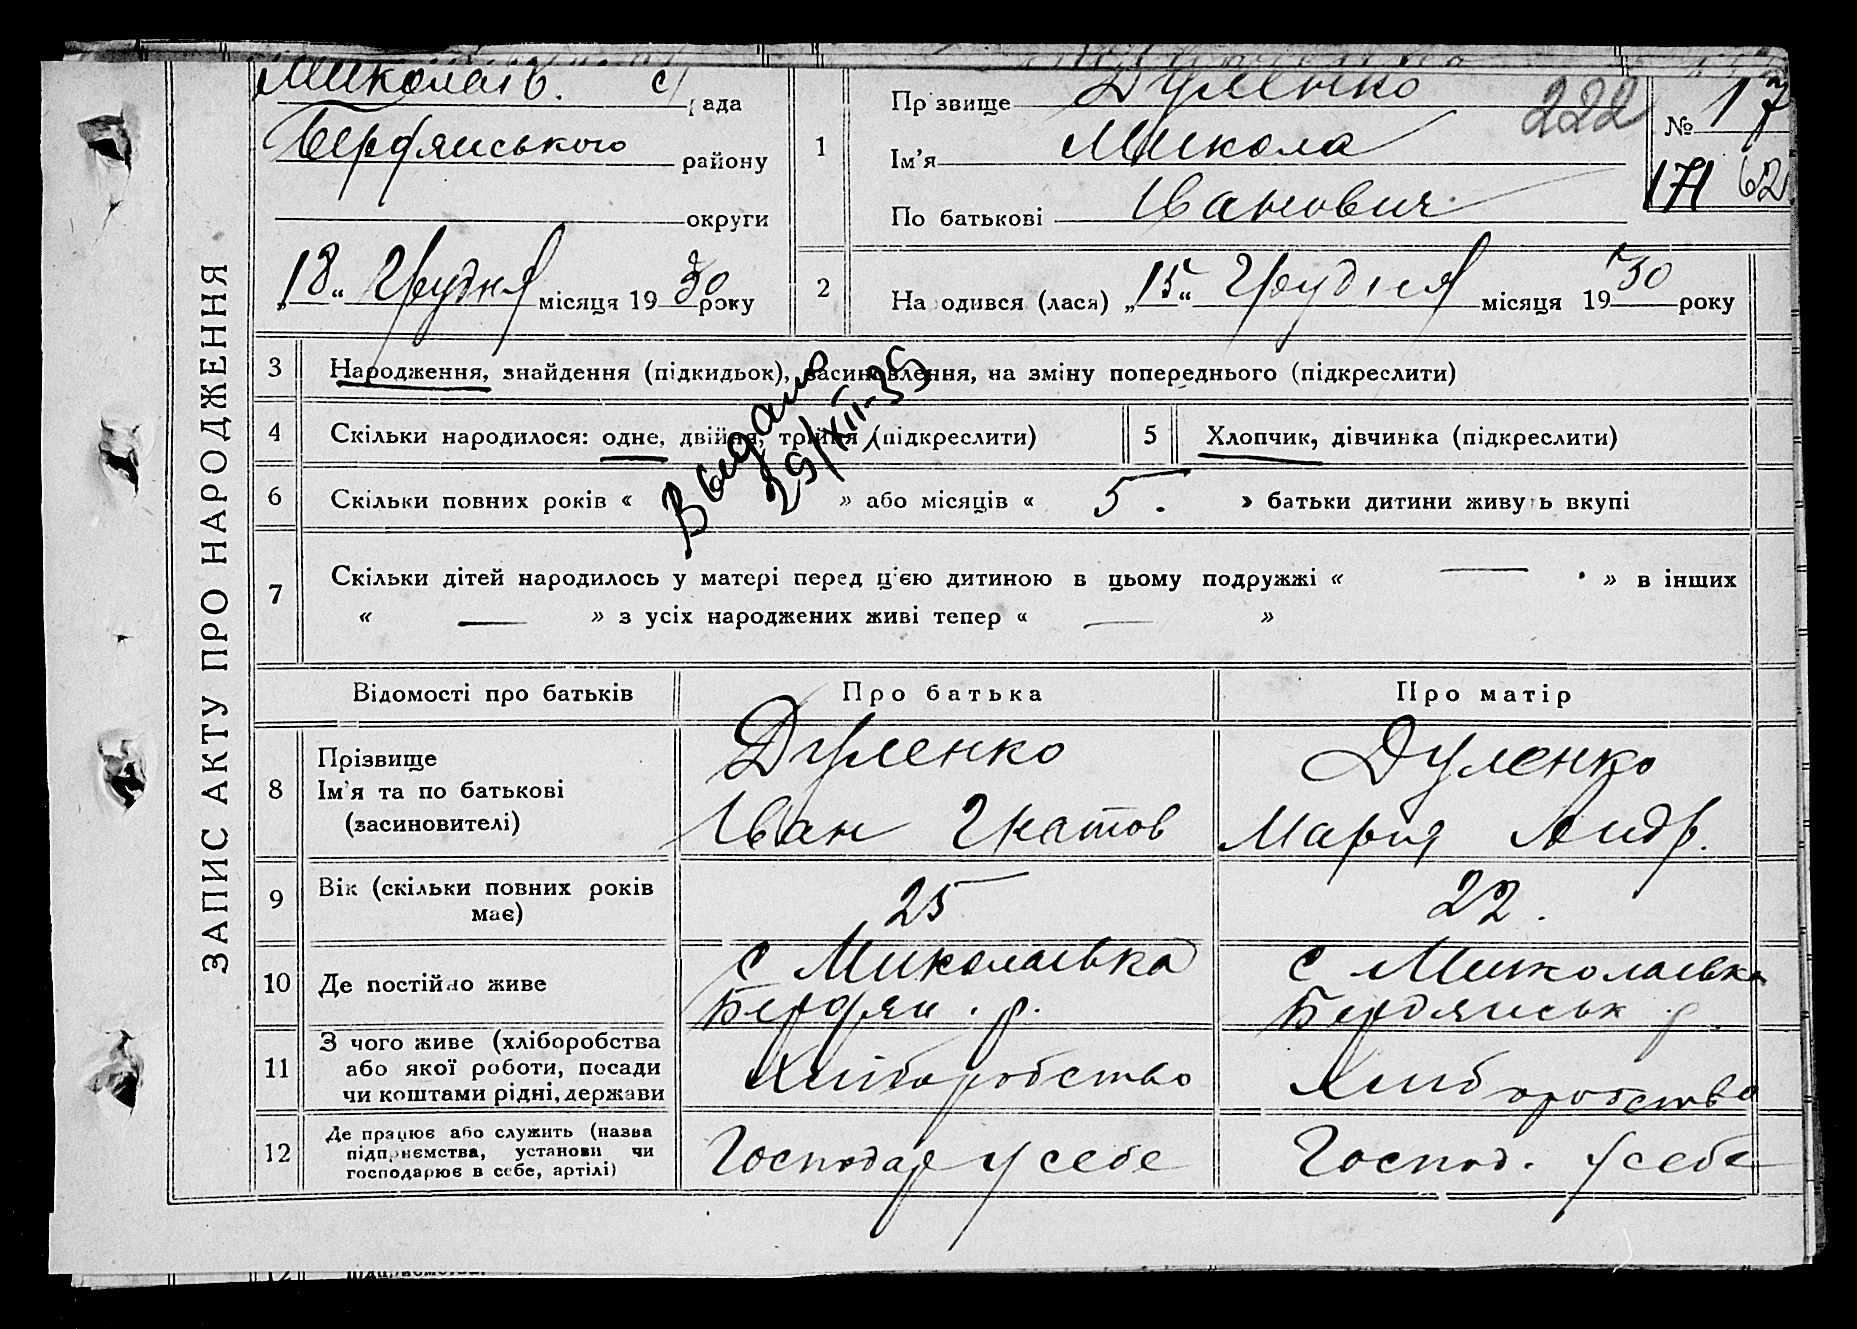 ЗАПИС АКТУ ПРО НАРОДЖЕННЯ
Миколаїв. с/рада
Бердянського району
округи
„18“ Грудня місяця 1930 року
1
Прізвище Дуленко
Ім’я Микола
По батькові Іванович
222
№ 17
171 62
2
Народився (лася) „15“ Грудня місяця 1930 року
3 Народження, знайдення (підкидьок), засиновлення, на зміну попереднього (підкреслити)
4 Скільки народилося: одне, двійня, трійня (підкреслити) 5 Хлопчик, дівчинка (підкреслити)
6 Скільки повних років « » або місяців « 5. » батьки дитини живуть вкупі
Выдано
29/XII-35
7 Скільки дітей народилось у матері перед цією дитиною в цьому подружжі « — » в інших
« — » з усіх народжених живі тепер « — »
Відомості про батьків Про батька Про матір
8 Прізвище
Ім’я та по батькові
(засиновителі)
Дуленко
Іван
Дуленко
Мария Андр.
9 Вік (скільки повних років
має)
25 22.
10 Де постійно живе
с Миколаївка
Бердян. р.
с Миколаївка
Бердянськ р
11 З чого живе (хліборобства
або якої роботи, посади
чи коштами рідні, держави
Хліборобство Хлиборобство
12 Де працює або служить (назва
підприємства, установи чи
господарює в себе, артілі)
Господар у себе Господ. у себе